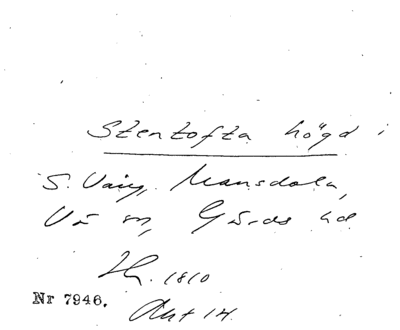 Stentofta högd i
S. Väng, Mansdala,
Vä sn, Gärds hd
Lm. 1810
Nr 7946. Akt 14